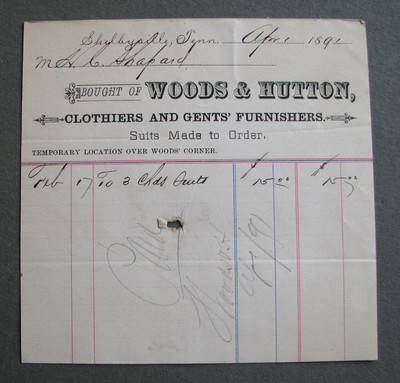 Shelbyville, Tenn. Apr 1 1891
M A. C. Shapard
BOUGHT OF WOODS & HUTTON,
CLOTHIERS AND GENTS' FURNISHERS.
Suits Made to Order.
TEMPORARY LOCATION OVER WOODS' CORNER.
Feb 17 To 3 Suits $15.00 $15.00
Woods & H
4/1/91